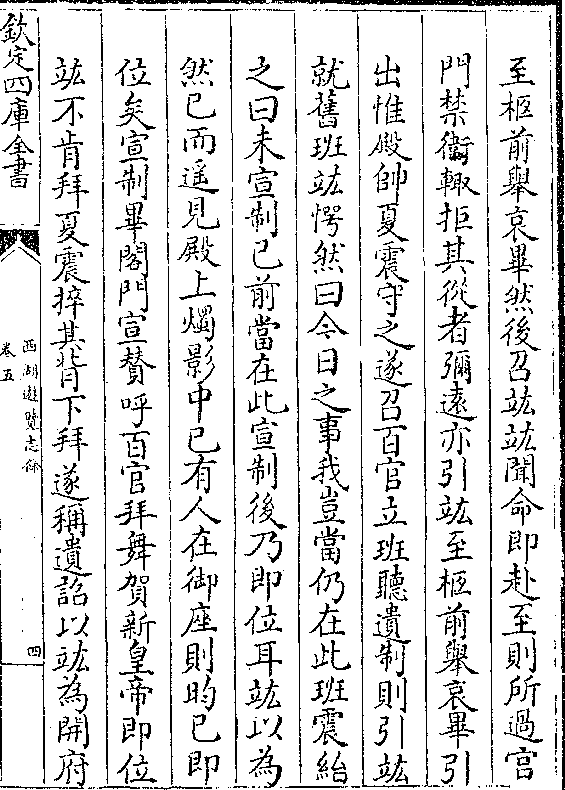 至柩前舉哀畢然後召竑竑聞命即赴至則所過宫
門禁衛輒拒其從者彌遠亦引竑至柩前舉哀畢引
出惟殿帥夏震守之遂召百官立班聽遺制則引竑
就舊班竑愕然曰今日之事我豈當仍在此班震紿
之曰未宣制已前當在此宣制後乃即位耳竑以為
然已而遥見殿上燭影中已有人在御座則昀已即
位矣宣制畢閣門宣贊呼百官拜舞賀新皇帝即位
竑不肯拜夏震捽其背下拜遂稱遺詔以竑為開府
欽定四庫全書
西湖遊覽志餘
卷五
四